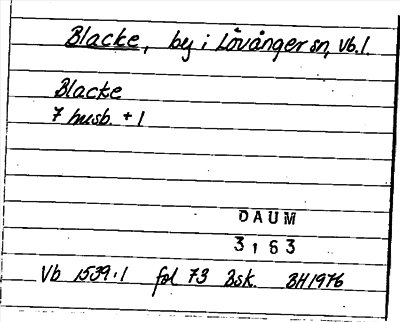 Blacke, by i Lövånger sn, Vb.l.
Blacke
7 husb. + 1
DAUM
3163
Vb 1539:1 fol 73 Bsk. BH1976